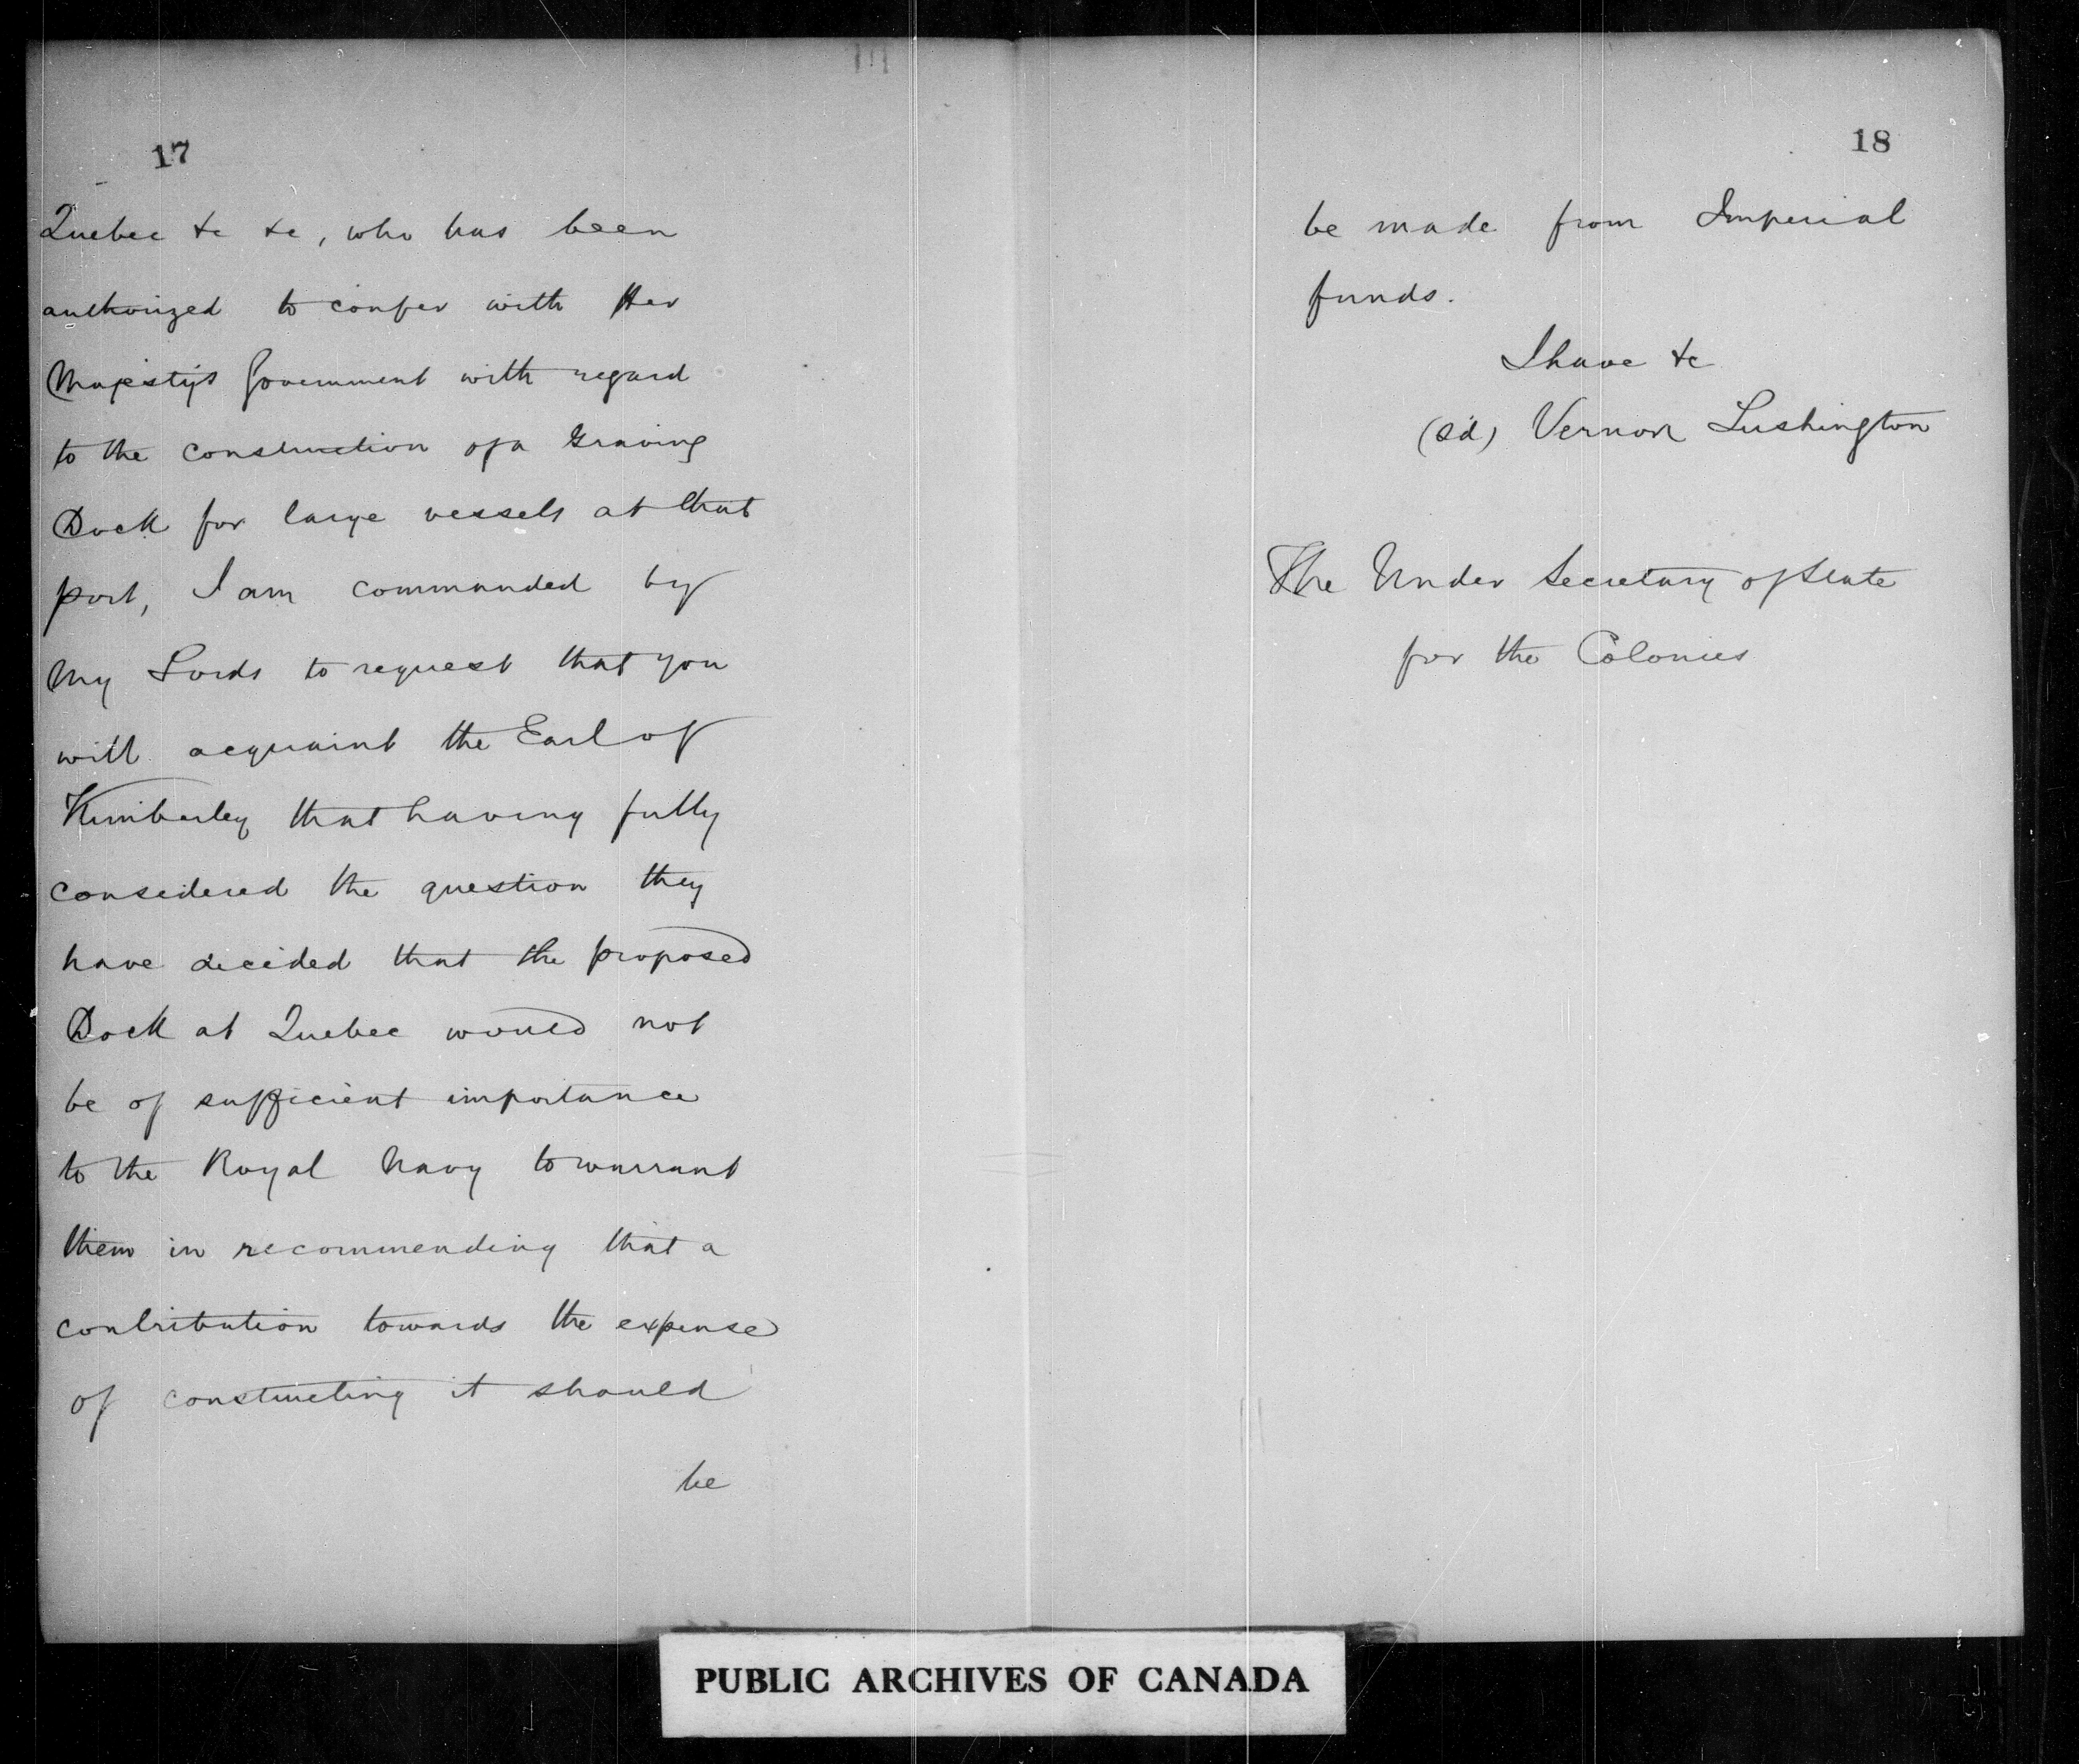 17
Quebec &c &c, who has been
authorized to confer with Her
Majesty's Government with regard
to the construction of a Graving
Dock for large vessels at that
port, I am commanded by
My Lords to request that you
will acquaint the Earl of
Kimberley that having fully
considered the question they
have decided that the proposed
Dock at Quebec would not
be of sufficient importance
to the Royal Navy to warrant
them in recommending that a
contribution towards the expense
of constructing it should
be
18
be made from Imperial
funds.
I have &c
(sd) Vernon Lushington
The Under Secretary of State
for the Colonies
PUBLIC ARCHIVES OF CANADA